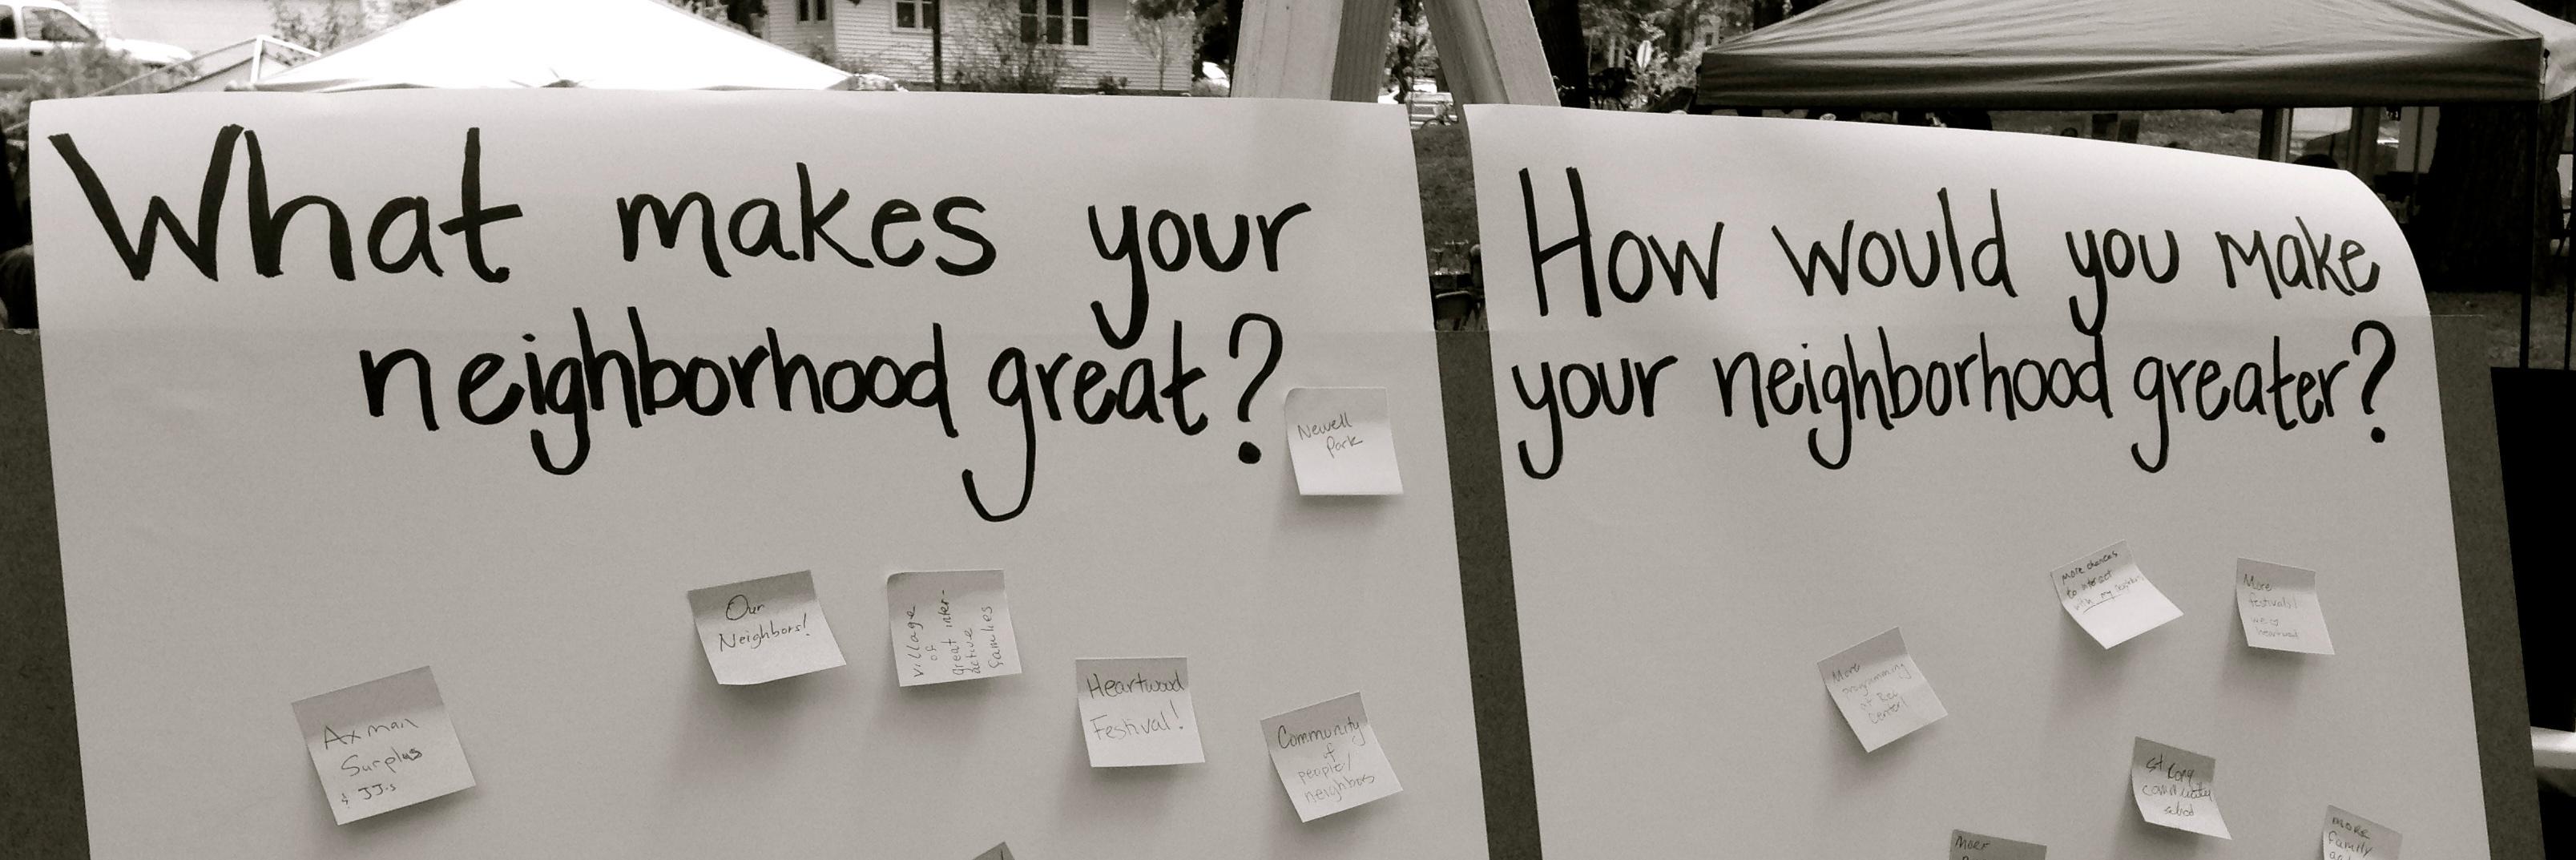 What makes your
neighborhood great?
Newell
Park
Our
Neighbors!
village
of
great inter-
active
families
Heartwood
Festival!
Community
of
people/
neighbors
Axman
Surplus
& JJ's
How would you make
your neighborhood greater?
More chances
to interact
with my neighbors
More
festivals!
like
heartwood
More
programming
at Rec
Center!
strong
community
school
more
family